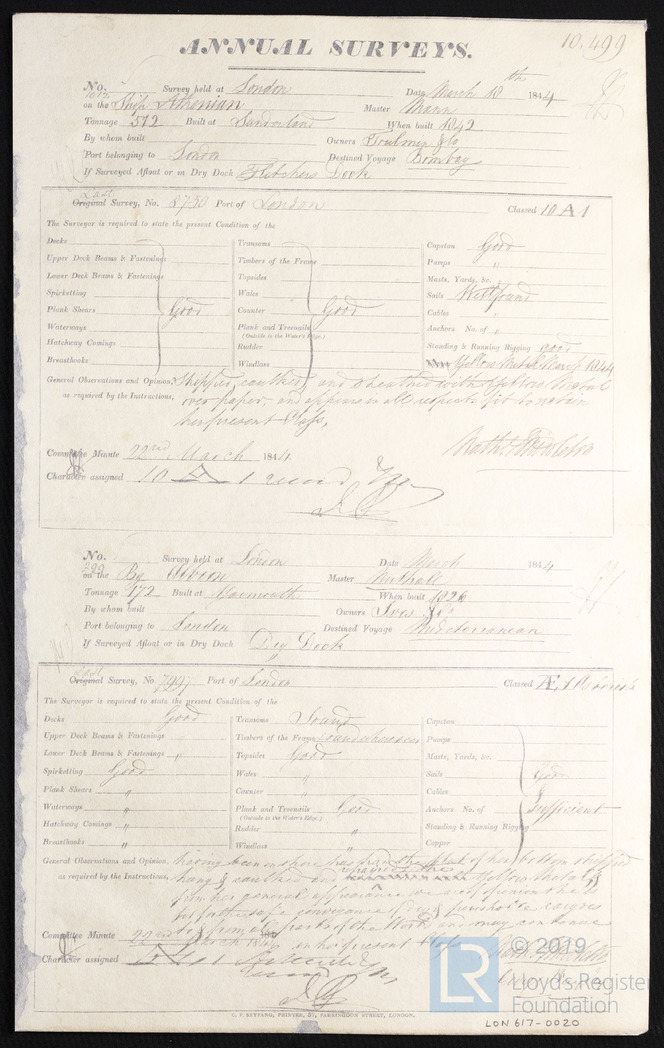 ANNUAL SURVEYS.
10,499
No. Survey held at London Date March 18th 1844
on the Ship Athenian Master Mann
Tonnage 512 Built at Sunderland When built 1842
By whom built Owners & Co
Port belonging to London Destined Voyage Bombay
If Surveyed Afloat or in Dry Dock Fletchers Dock
Last
Original Survey, No. 8730 Port of London Classed 10 A 1
The Surveyor is required to state the present Condition of the
Decks Transoms Capstan Good
Upper Deck Beams & Fastenings Timbers of the Frame Pumps "
Lower Deck Beams & Fastenings Topsides Masts, Yards, &c.
Spirketting Wales Sails Well found
Plank Shears Good Counter Good Cables
Waterways Plank and Treenails Anchors No. of
(Outside to the Water's Edge.)
Hatchway Comings Rudder Standing & Running Rigging good
Breasthooks Windlass Yellow Metal March 1844
General Observations and Opinion, Stripped, caulked, and sheathed with Yellow Metal
as required by the Instructions, over paper, and appears in all respects fit to retain
her present Class,
Committee Minute 22nd March 1844
Character assigned 10 A 1
No. Survey held at London Date March 1844
299
on the Bg Albion Master
Tonnage 172 Built at Yarmouth When built 1826
By whom built Owners Ives & Co
Port belonging to London Destined Voyage Mediterranean
If Surveyed Afloat or in Dry Dock Dry Dock
Last
Original Survey, No. 7997 Port of London Classed Æ 1
The Surveyor is required to state the present Condition of the
Decks Good Transoms Sound Capstan
Upper Deck Beams & Fastenings Timbers of the Frame Pumps
Lower Deck Beams & Fastenings " Topsides Good Masts, Yards, &c.
Spirketting Good Wales " Sails Good
Plank Shears " Counter " Cables
Waterways " Plank and Treenails Good Anchors No. of Sufficient
(Outside to the Water's Edge.)
Hatchway Comings " Rudder " Standing & Running Rigging
Breasthooks " Windlass " Copper
General Observations and Opinion, having been on shore has had the metal of her bottom stripped
as required by the Instructions, and caulked and Yellow Metal
from her general appearance we are of opinion she is
fit for the safe conveyance of dry & perishable cargoes
to & from all parts of the World and may continue
Committee Minute 22nd March 1844 in her present Class
Character assigned Æ 1
C. F. SEYFANG, PRINTER, 57, FARRINGDON STREET, LONDON.
LR
© 2019
Lloyd's Register
Foundation
LON 617-0020